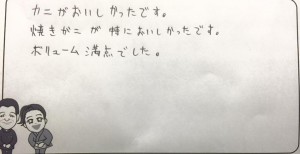 カニがおいしかったです。
焼きがニが特においしかったです。
ボリューム満点でした。